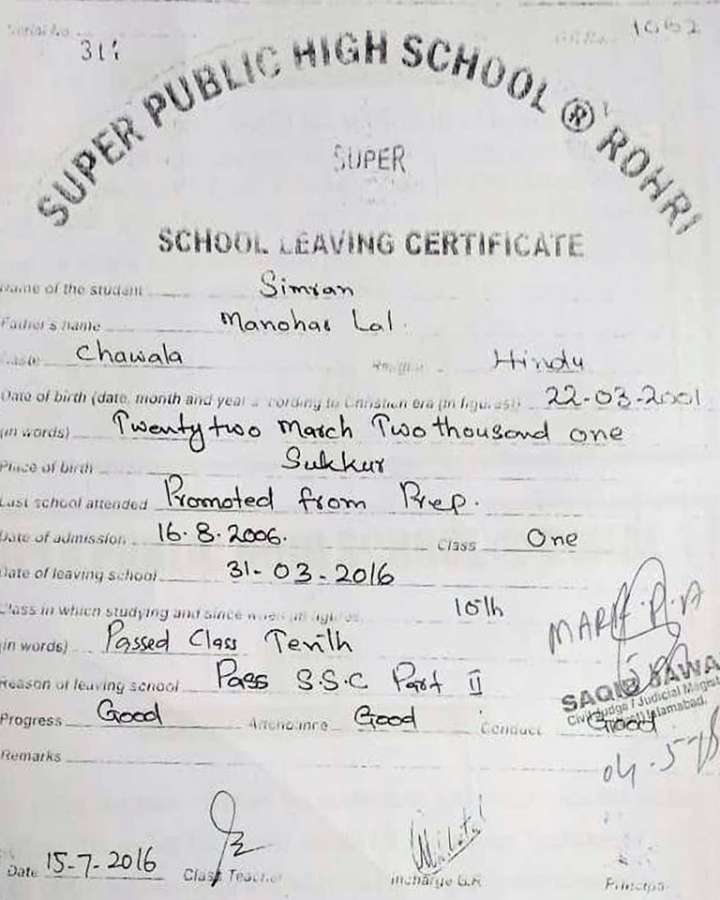 Serial No. 311
G.R.No. 1662
SUPER PUBLIC HIGH SCHOOL ® ROHRI
SUPER
SCHOOL LEAVING CERTIFICATE
Name of the student Simran
Father's name Manohar Lal.
Caste Chawala Hindu
Date of birth (date, month and year according to Christian era (in figures)) 22-03-2001
(in words) Twenty two March Two thousand one
Place of birth Sukkur
Last school attended Promoted from Prep.
Date of admission 16.8.2006. Class One
Date of leaving school 31-03-2016
Class in which studying and since when in figures 10th
(in words) Passed Class Tenth
MARK P.A
Reason of leaving school Pass S.S.C Part II
SAQIB
Civil Judge / Judicial Magist
Islamabad.
Progress Good Attendance Good Conduct Good
Remarks
Date 15-7-2016 Class Teacher Incharge G.R Principa